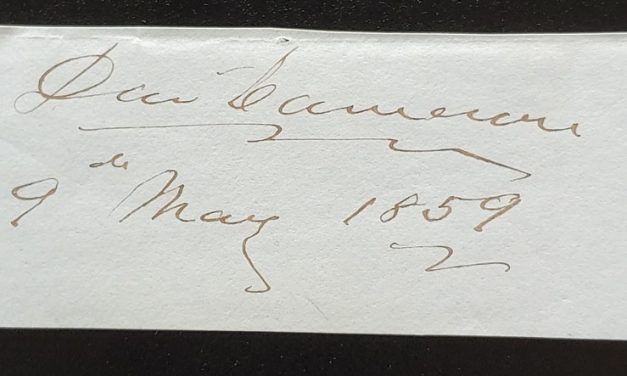 Dan Cameron
9th May 1859